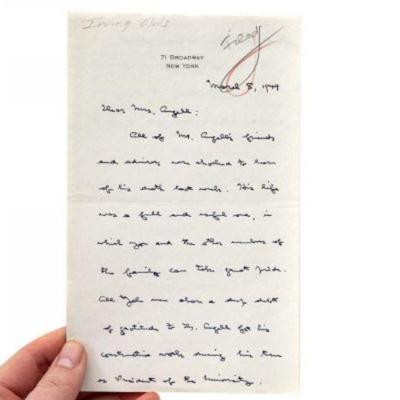 Irving Olds
filed
71 BROADWAY
NEW YORK
March 8, 1949
Dear Mrs. Angell:
All of Mr. Angell's friends
and admirers were shocked to learn
of his death last week. His life
was a full and useful one, in
which you and the other members of
the family can take great pride.
All Yale men share a deep debt
of gratitude to Mr. Angell for his
constructive work during his term
as President of the University.